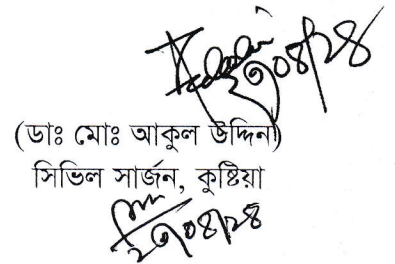 ২৩/০৪/২৪
(ডাঃ মোঃ আকুল উদ্দিন)
সিভিল সার্জন, কুষ্টিয়া
২৩/০৪/২৪